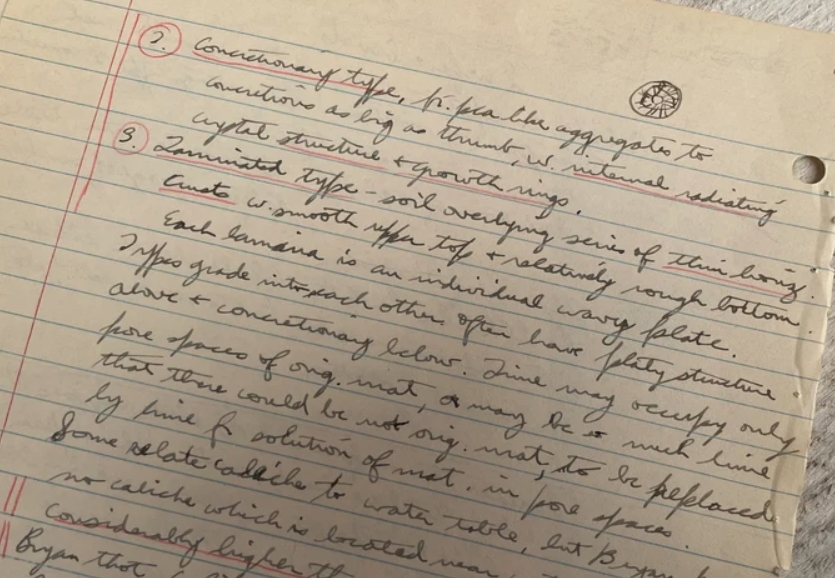 2. Concretionary type, fr. pea like aggregates to
concretions as big as thumb, w. internal radiating
crystal structure + growth rings.
3. Laminated type - soil overlying series of thin horiz.
crusts w. smooth upper top + relatively rough bottom.
Each lamina is an individual wavy plate.
Types grade into each other, often have platy structure
above + concretionary below. Lime may occupy only
pore spaces of orig. mat, or may be so much lime
that there would be not orig. mat, to be replaced
by lime fr solution of mat. in pore spaces.
Some relate caliche to water table, but Bryan
no caliche which is located near
considerably higher
Bryan that